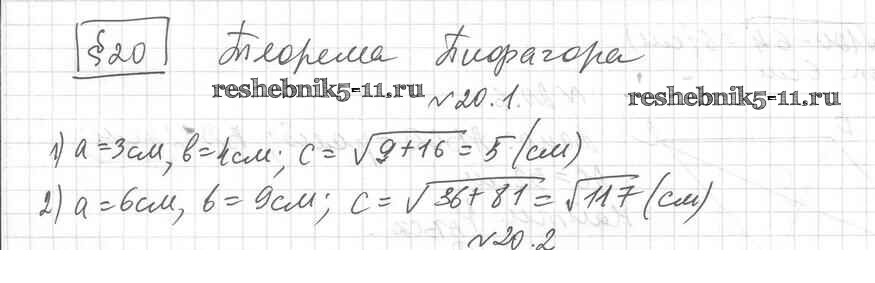 §20 Теорема Пифагора
reshebnik5-11.ru
№20.1.
reshebnik5-11.ru
1) a=3см, b=4см; c=√(9+16)=5(см)
2) a=6см, b=9см; c=√(36+81)=√117(см)
№20.2